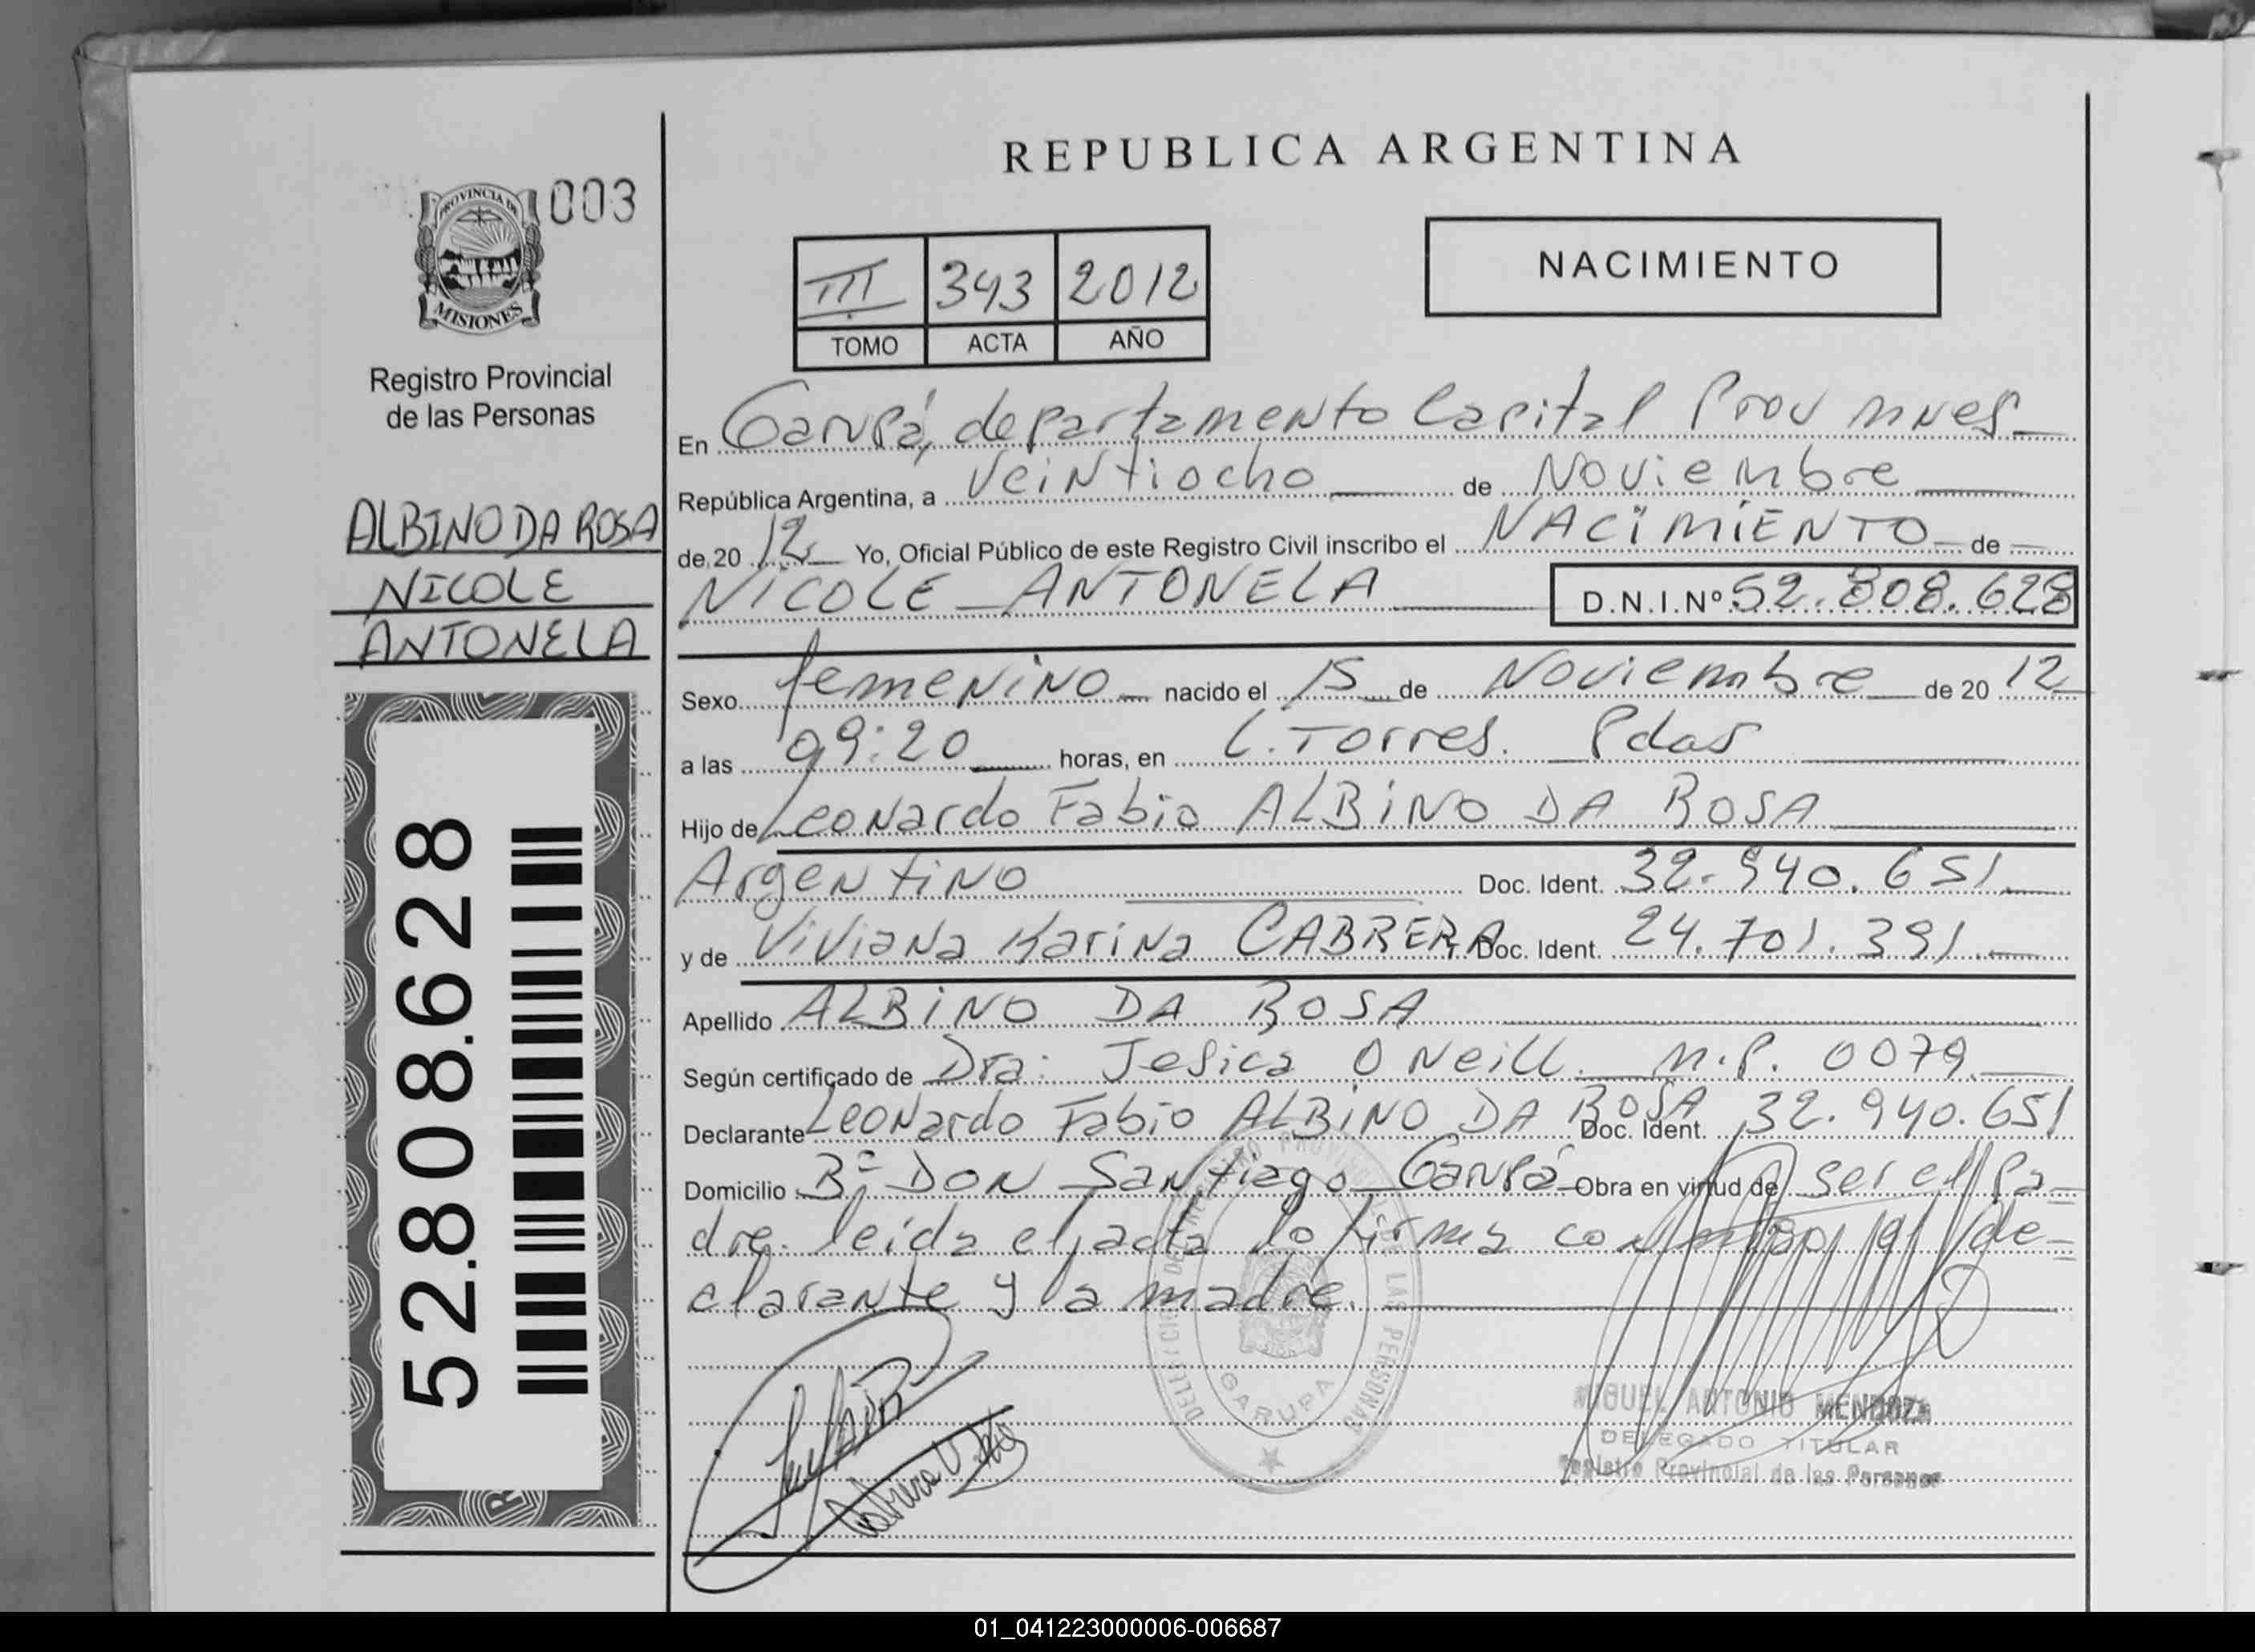 REPUBLICA ARGENTINA
PROVINCIA DE
MISIONES
003
Registro Provincial
de las Personas
ALBINO DA ROSA
NICOLE
ANTONELA
52.808.628
III 343 2012
TOMO ACTA AÑO
NACIMIENTO
En Garupá, departamento Capital Prov Mnes
República Argentina, a Veintiocho de Noviembre
de 20 12 Yo, Oficial Público de este Registro Civil inscribo el NACIMIENTO de
NICOLE ANTONELA D.N.I.Nº 52.808.628
Sexo femenino nacido el 15 de Noviembre de 20 12
a las 09:20 horas, en C. Torres. Pdas
Hijo de Leonardo Fabio ALBINO DA ROSA
Argentino Doc. Ident. 32.940.651
y de Viviana Karina CABRERA Doc. Ident. 24.701.391
Apellido ALBINO DA ROSA
Según certificado de Dra: Jesica O Neill. M.P. 0079
Declarante Leonardo Fabio ALBINO DA ROSA Doc. Ident. 32.940.651
Domicilio Bº DON Santiago Garupá Obra en virtud de ser el pa-
dre. leida el acta lo firma con el de-
clarante y la madre.
DE LAS PERSONAS
GARUPA
MIGUEL ANTONIO MENDOZA
DELEGADO TITULAR
Registro Provincial de las Personas
01_041223000006-006687